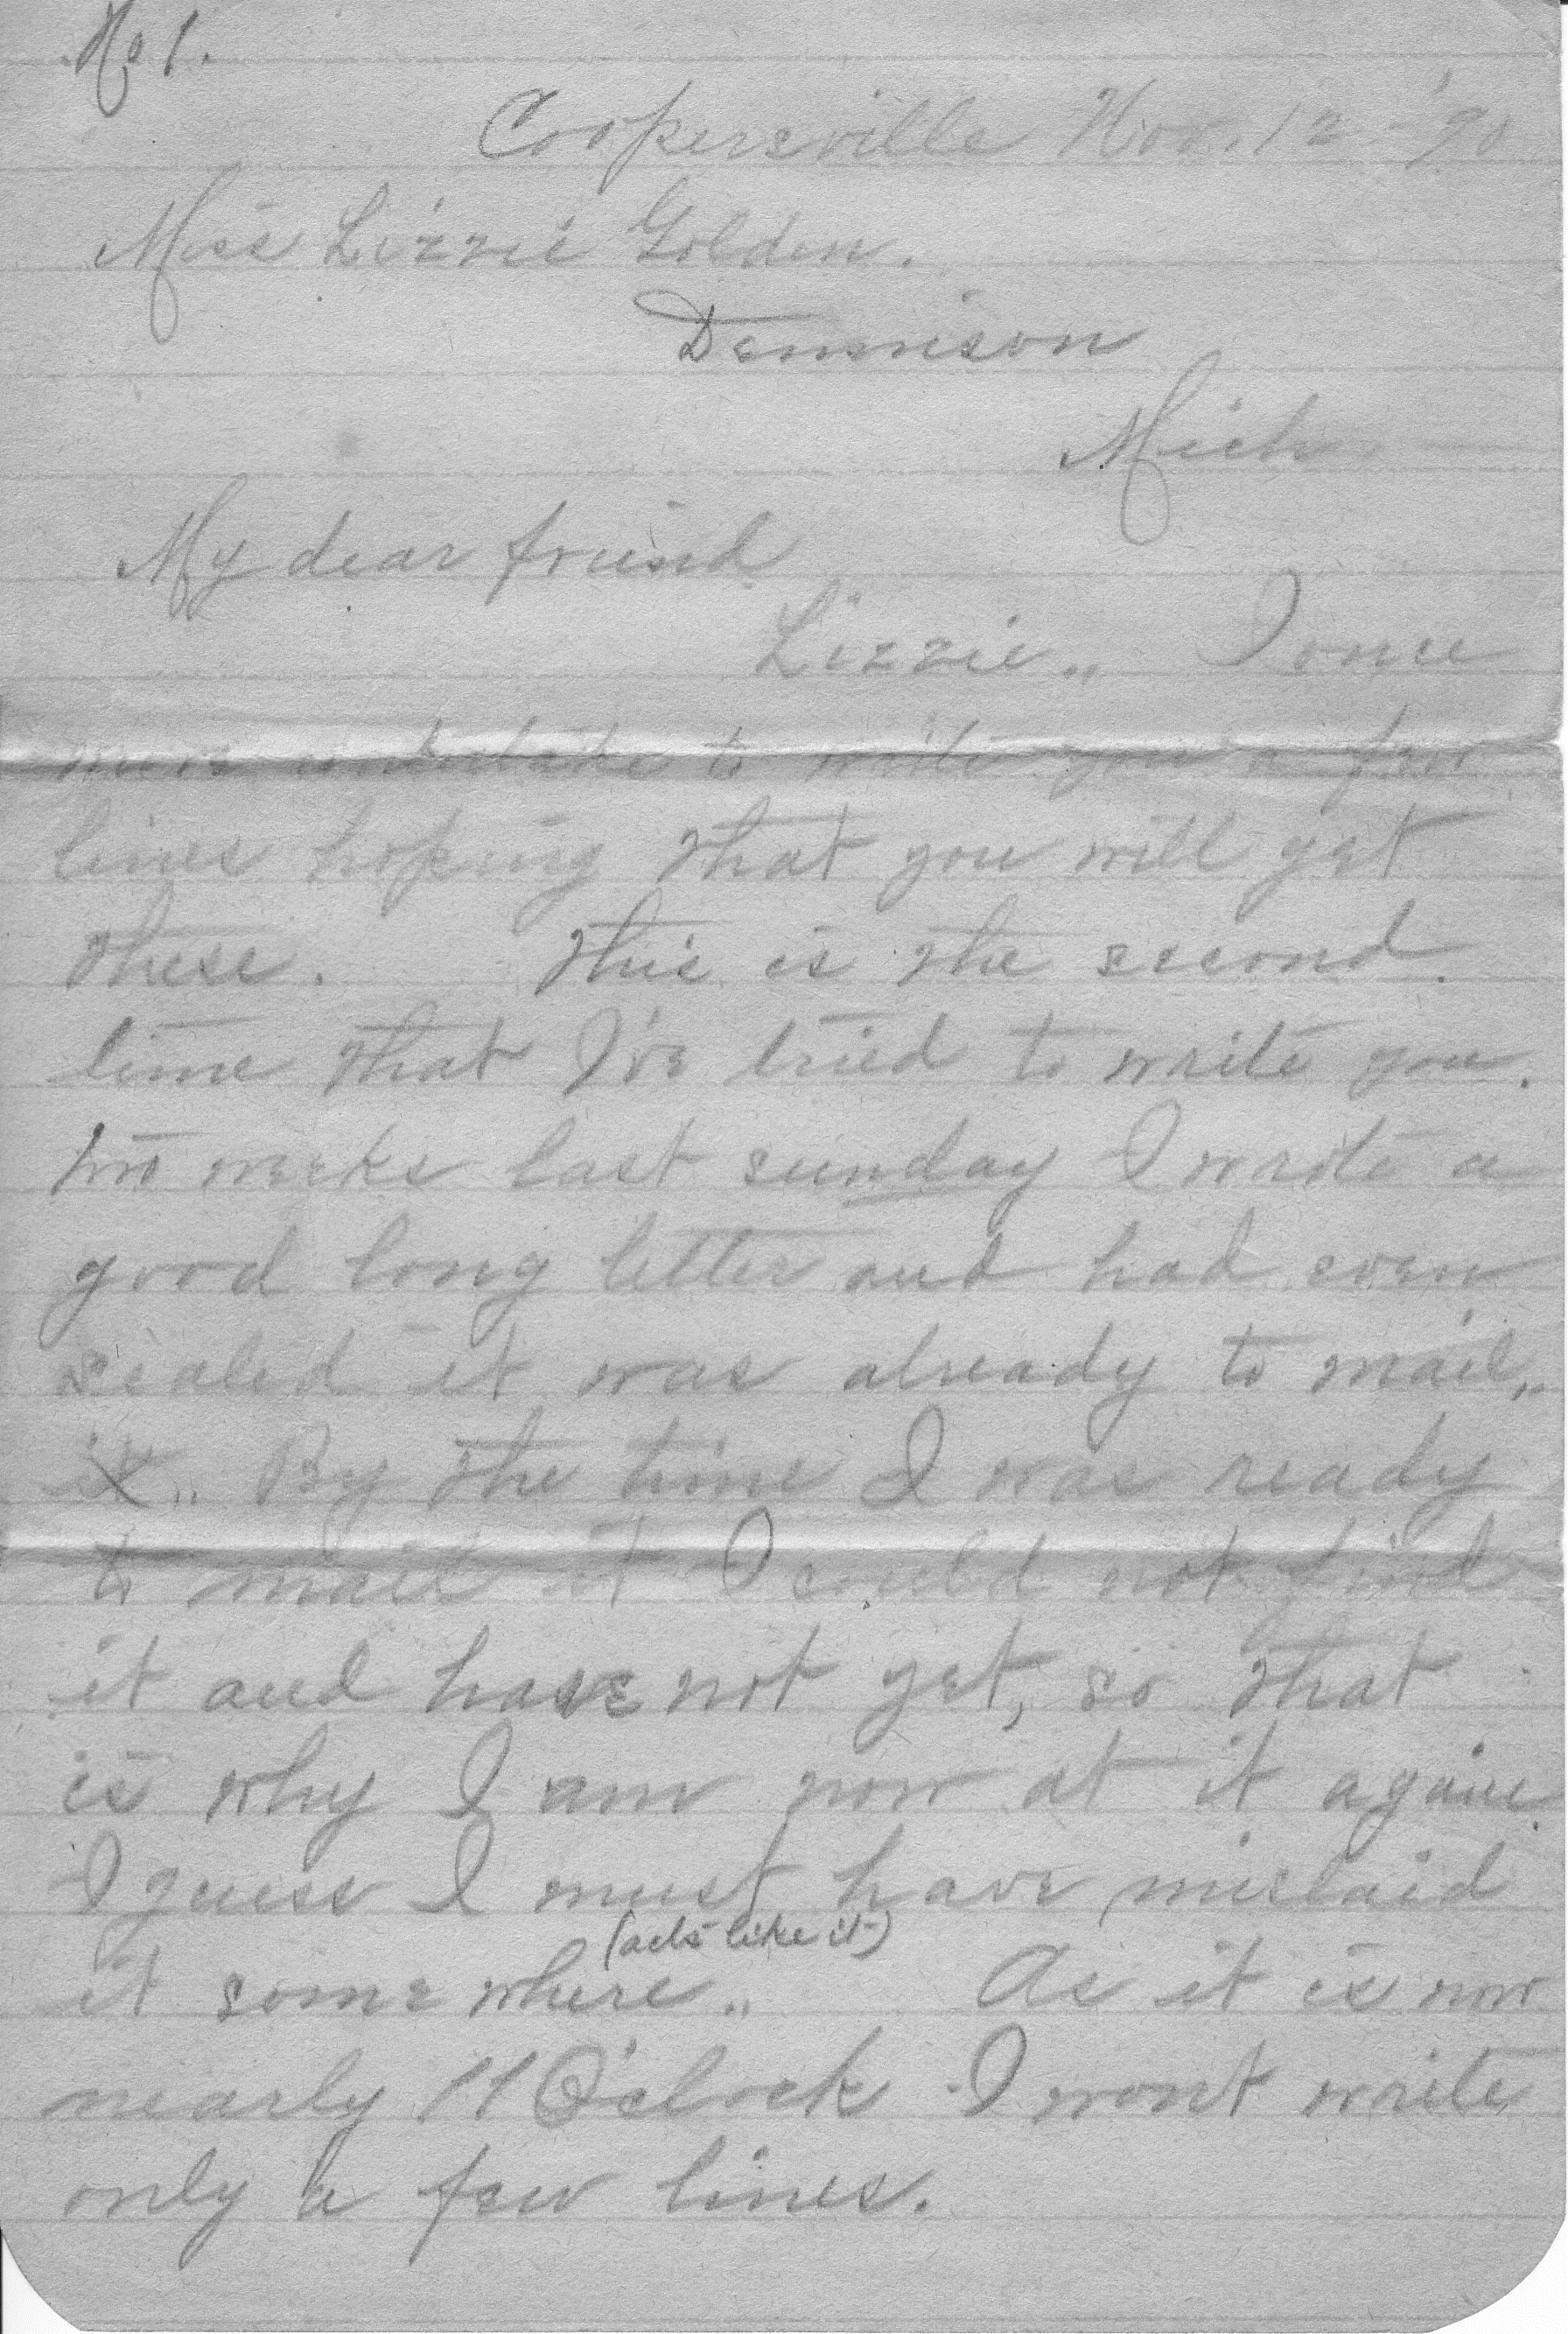 No 1.
Coopersville Nov. 12 - '90
Miss Lizzie Golden.
Dennison
Mich.
My dear friend
Lizzie„ I once
more undertake to write you a few
lines hoping that you will get
these. This is the second
time that I've tried to write you.
two weeks last sunday I wrote a
good long letter and had even
sealed it was already to mail„
it„ By the time I was ready
to mail it I could not find
it and have not yet, so that
is why I am now at it again.
I guess I must have mislaid
(acts like it)
it some where„ As it is now
nearly 11 O'clock I wont write
only a few lines.